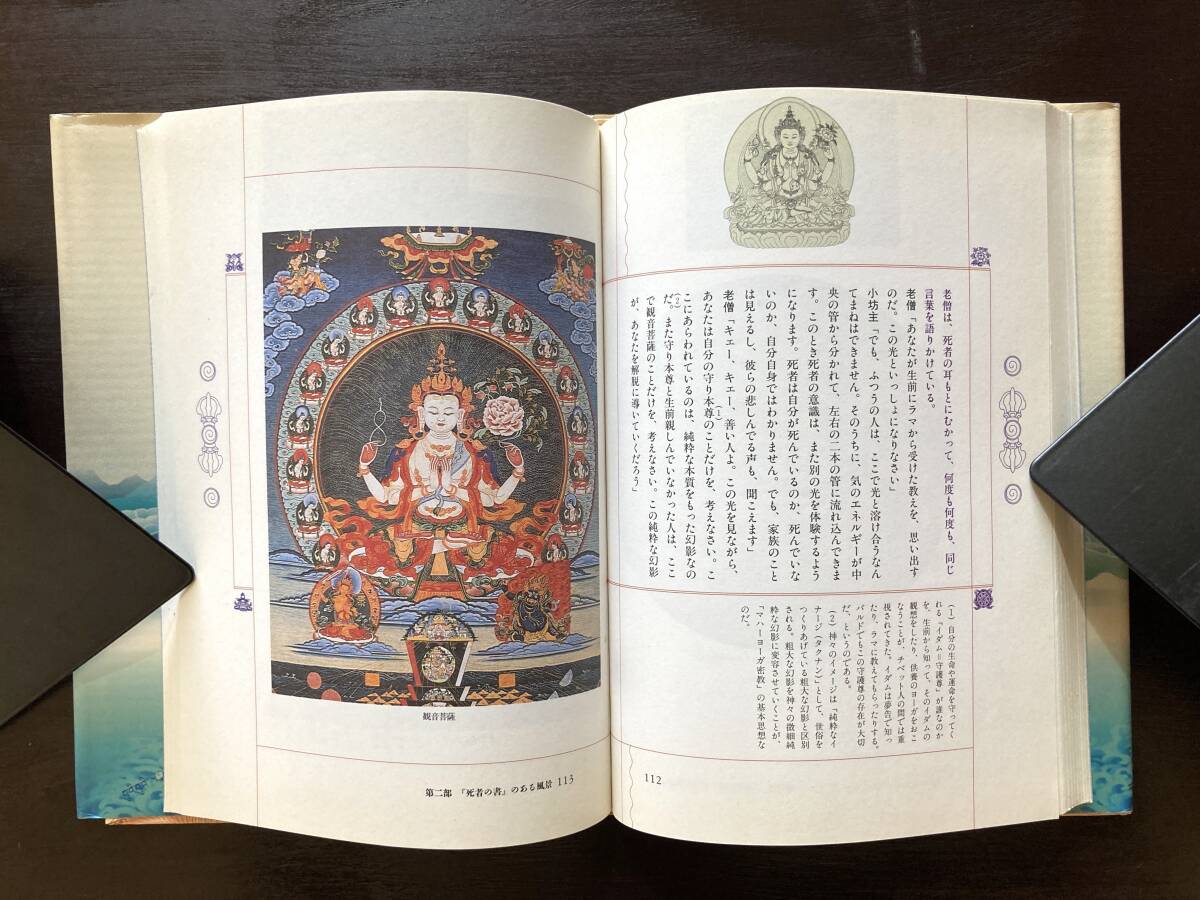 老僧は、死者の耳もとにむかって、何度も何度も、同じ
言葉を語りかけている。
老僧「あなたが生前にラマから受けた教えを、思い出す
のだ。この光といっしょになりなさい」
小坊主「でも、ふつうの人は、ここで光と溶け合うなん
てまねはできません。そのうちに、気のエネルギーが中
央の管から分かれて、左右の二本の管に流れ込んできま
す。このとき死者の意識は、また別の光を体験するよう
になります。死者は自分が死んでいるのか、死んでいな
いのか、自分自身ではわかりません。でも、家族のこと
は見えるし、彼らの悲しんでる声も、聞こえます」
老僧「キェー、キェー、善い人よ。この光を見ながら、
あなたは自分の守り本尊のことだけを、考えなさい。こ
(1)
こにあらわれているのは、純粋な本質をもった幻影なの
だ。また守り本尊と生前親しんでいなかった人は、ここ
(2)
で観音菩薩のことだけを、考えなさい。この純粋な幻影
が、あなたを解脱に導いていくだろう」
(1) 自分の生命や運命を守ってく
れる「イダム=守護尊」が誰なのか
を、生前から知って、そのイダムの
観想をしたり、供養のヨーガをおこ
なうことが、チベット人の間では重
視されてきた。イダムは夢告で知っ
たり、ラマに教えてもらったりする。
バルドでもこの守護尊の存在が大切
だ、というのである。
(2) 神々のイメージは「純粋なイ
ナージ(タクナン)」として、世俗を
つくりあげている粗大な幻影と区別
される。粗大な幻影を神々の微細純
粋な幻影に変容させていくことが、
「マハーヨーガ密教」の基本思想な
のだ。
112
観音菩薩
第二部 『死者の書』のある風景 113